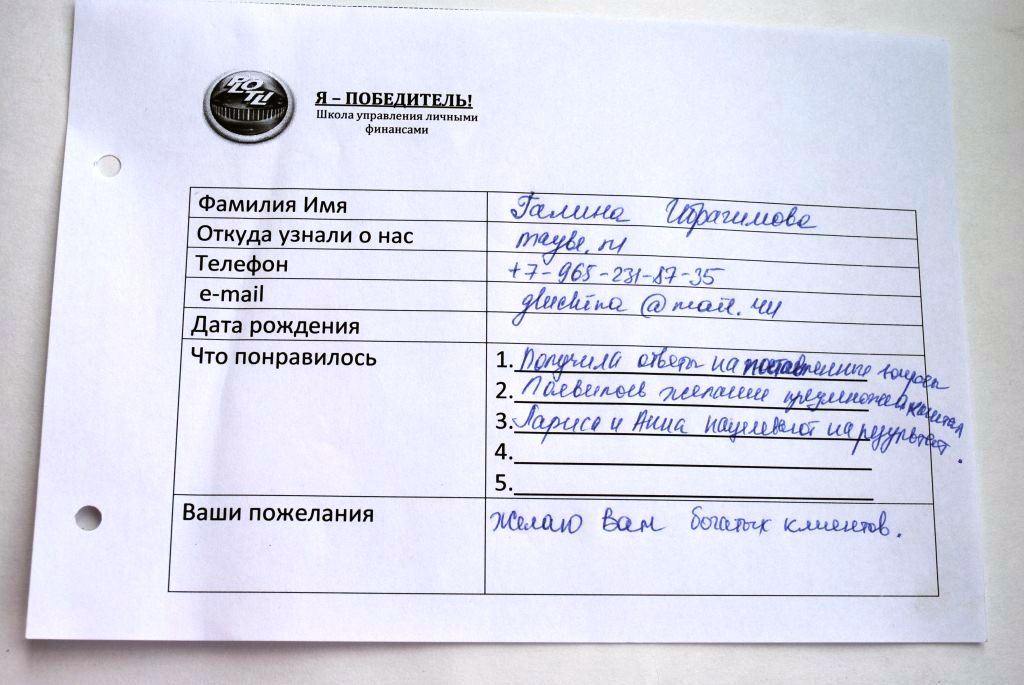 Я – ПОБЕДИТЕЛЬ!
Школа управления личными
финансами
Фамилия Имя Галина Ибрагимова
Откуда узнали о нас maybe.ru
Телефон +7-965-231-87-35
e-mail @mail.ru
Дата рождения
Что понравилось 1. Получила ответы на поставленные вопросы
2. Появилось желание преумножать капитал
3. Лариса и Анна нацеливают на результат.
4.
5.
Ваши пожелания Желаю Вам богатых клиентов.